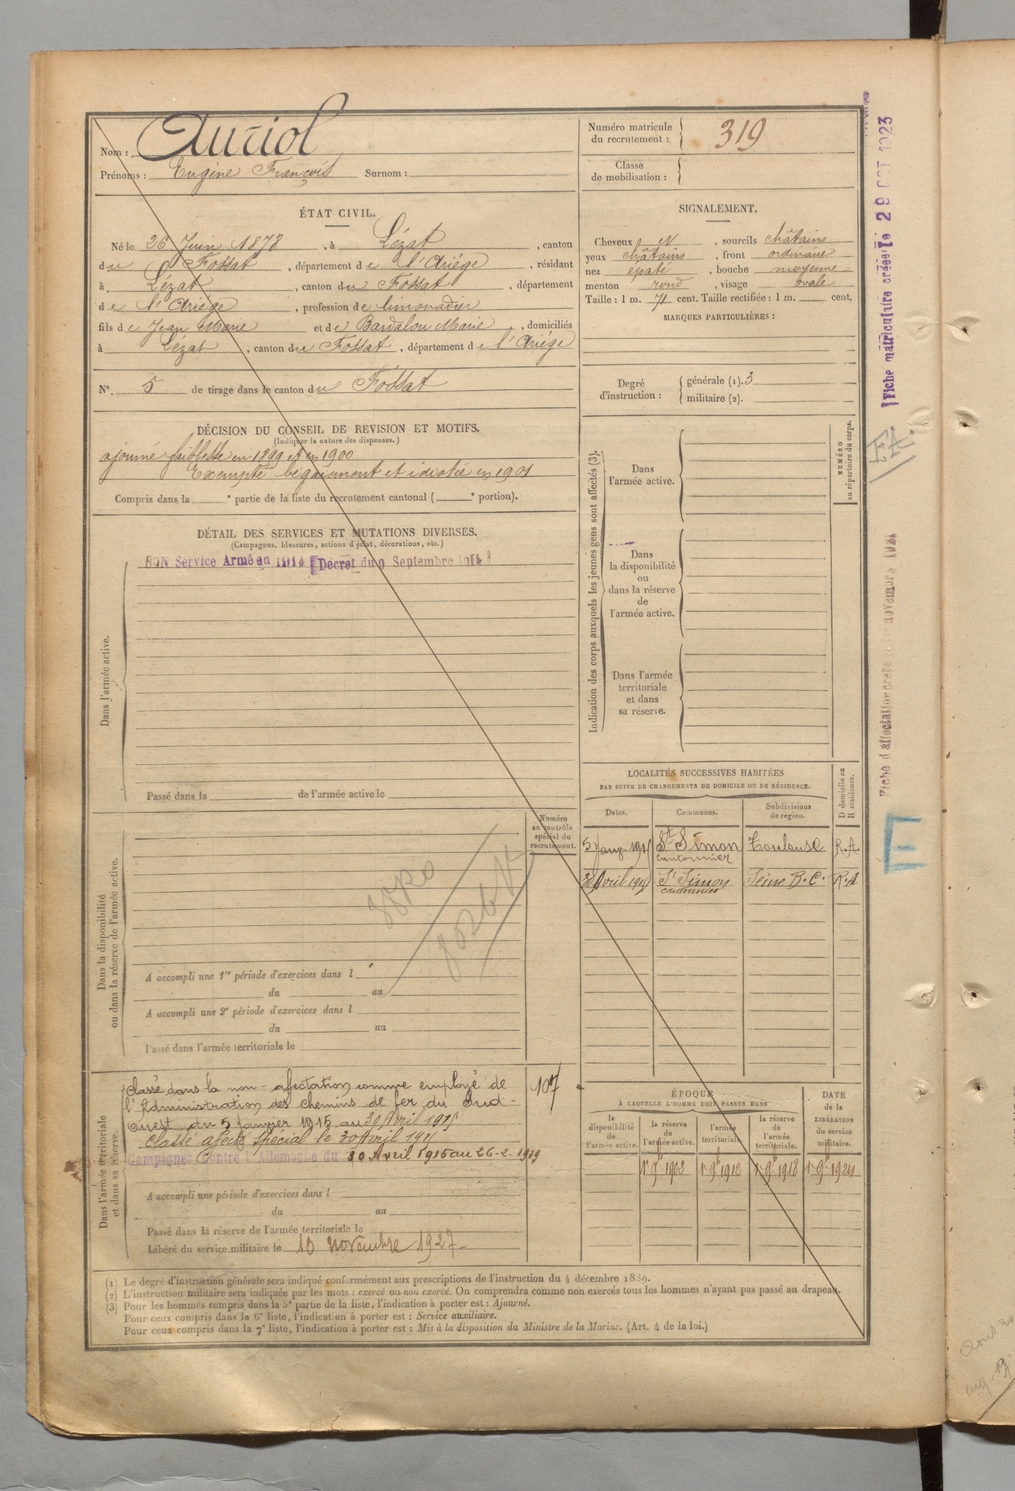 Nom : Auriol
Prénoms : Eugène François Surnom :
Numéro matricule du recrutement : 319
Classe de mobilisation :
ÉTAT CIVIL.
Né le 26 Juin 1878, à Lézat, canton
du Fossat, département de l'Ariége, résidant
à Lézat, canton du Fossat, département
de l'Ariége, profession de limonadier
fils de Jean Marie et de Bardalou Marie, domiciliés
à Lézat, canton du Fossat, département de l'Ariége
N° 5 de tirage dans le canton du Fossat
SIGNALEMENT.
Cheveux et, sourcils châtains
yeux châtains, front ordinaire
nez épaté, bouche moyenne
menton rond, visage ovale
Taille : 1 m. 71 cent. Taille rectifiée : 1 m. cent.
MARQUES PARTICULIÈRES :
Degré d'instruction : générale (1). 3
militaire (2).
DÉCISION DU CONSEIL DE REVISION ET MOTIFS.
(Indiquer la nature des dispenses.)
ajourné faiblesse en 1899 et en 1900
Exempté bégaiement et idiotie en 1901
Compris dans la e partie de la liste du recrutement cantonal ( e portion).
DÉTAIL DES SERVICES ET MUTATIONS DIVERSES.
(Campagnes, blessures, actions d'éclat, décorations, etc.)
BON Service Armé en 1914 Décret du 9 Septembre 1914
Dans l'armée active.
Passé dans la de l'armée active le
Indication des corps auxquels les jeunes gens sont affectés (3).
NUMÉRO au répertoire du corps.
Dans l'armée active.
Dans la disponibilité ou dans la réserve de l'armée active.
Dans l'armée territoriale et dans sa réserve.
LOCALITÉS SUCCESSIVES HABITÉES
PAR SUITE DE CHANGEMENTS DE DOMICILE OU DE RÉSIDENCE.
Dates. Communes. Subdivisions de région. D domicile ou R résidence.
5 Janv. 1915 St Simon cantonnier Toulouse R.A
30 Avril 1915 St Simon cantonnier Seine B.C. R.A
Numéro au contrôle spécial du recrutement.
Dans la disponibilité ou dans la réserve de l'armée active.
A accompli une 1re période d'exercices dans l
du au
A accompli une 2e période d'exercices dans l
du au
Passé dans l'armée territoriale le
Dans l'armée territoriale et dans sa réserve.
Classé dans la non-affectation comme employé de
l'Administration des chemins de fer du Sud-
Ouest du 5 Janvier 1915 au 30 Avril 1915
Classé affecté spécial le 30 avril 1915
Campagne contre l'Allemagne du 30 Avril 1915 au 26-2-1919
107
A accompli une période d'exercices dans l
du au
Passé dans la réserve de l'armée territoriale le
Libéré du service militaire le 10 novembre 1927
ÉPOQUE
À LAQUELLE L'HOMME DOIT PASSER DANS
la disponibilité de l'armée active. la réserve de l'armée active. l'armée territoriale. la réserve de l'armée territoriale. DATE de la LIBÉRATION du service militaire.
(1) Le degré d'instruction générale sera indiqué conformément aux prescriptions de l'instruction du 4 décembre 1889.
(2) L'instruction militaire sera indiquée par les mots : exercé ou non exercé. On comprendra comme non exercés tous les hommes n'ayant pas passé au drapeau.
(3) Pour les hommes compris dans la 5e partie de la liste, l'indication à porter est : Ajourné.
Pour ceux compris dans la 6e liste, l'indication à porter est : Service auxiliaire.
Pour ceux compris dans la 7e liste, l'indication à porter est : Mis à la disposition du Ministre de la Marine. (Art. 4 de la loi.)
Fiche matriculaire créée le 29 OCT 1923
E